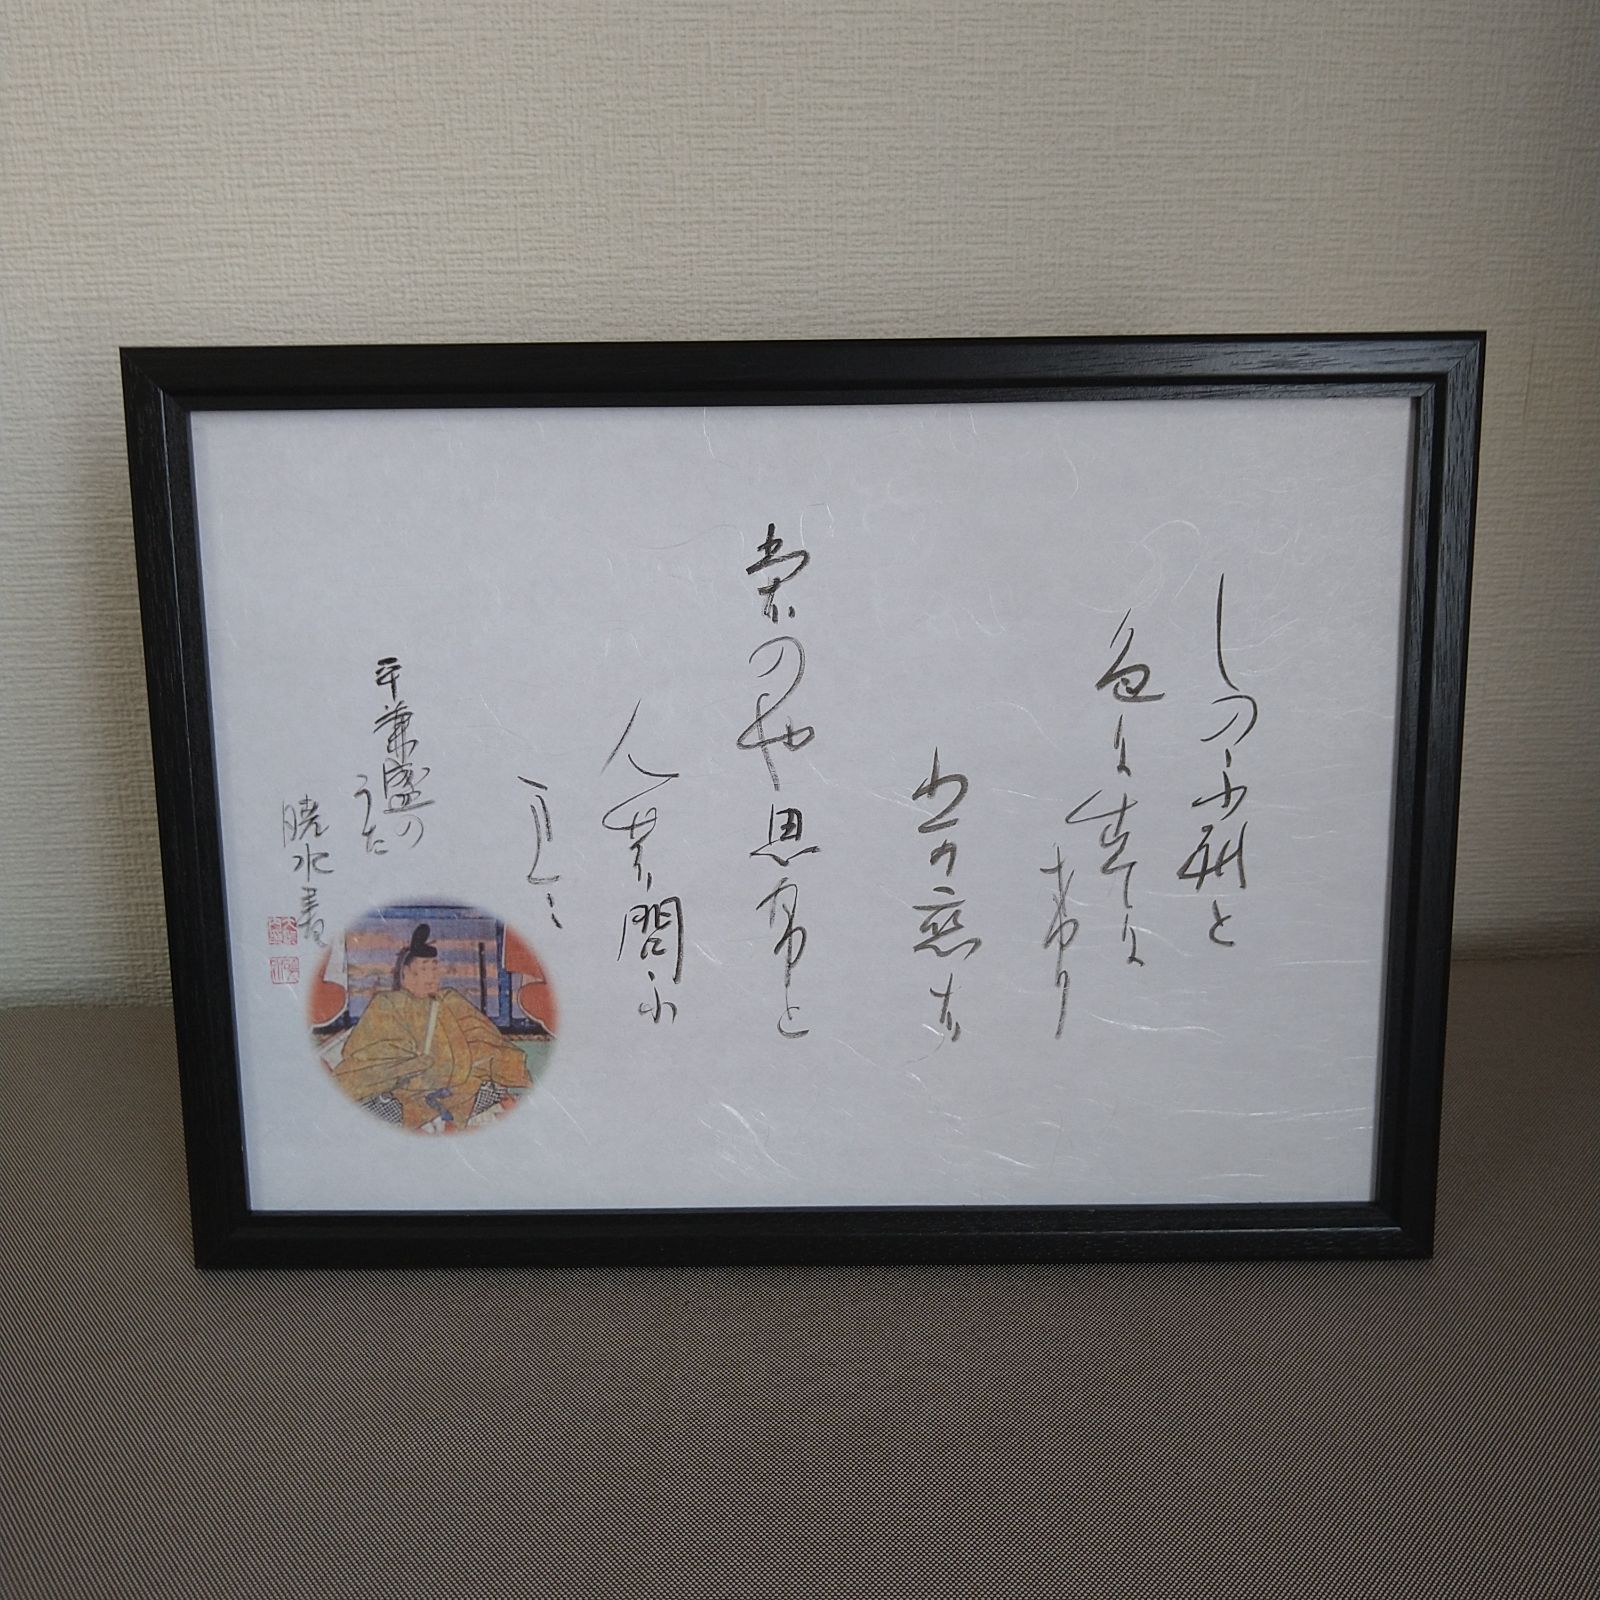 しのふれと
色に出でに
けり
わか恋は
ものや思ふと
人の問ふ
まて
平兼盛の
うた
暁水書